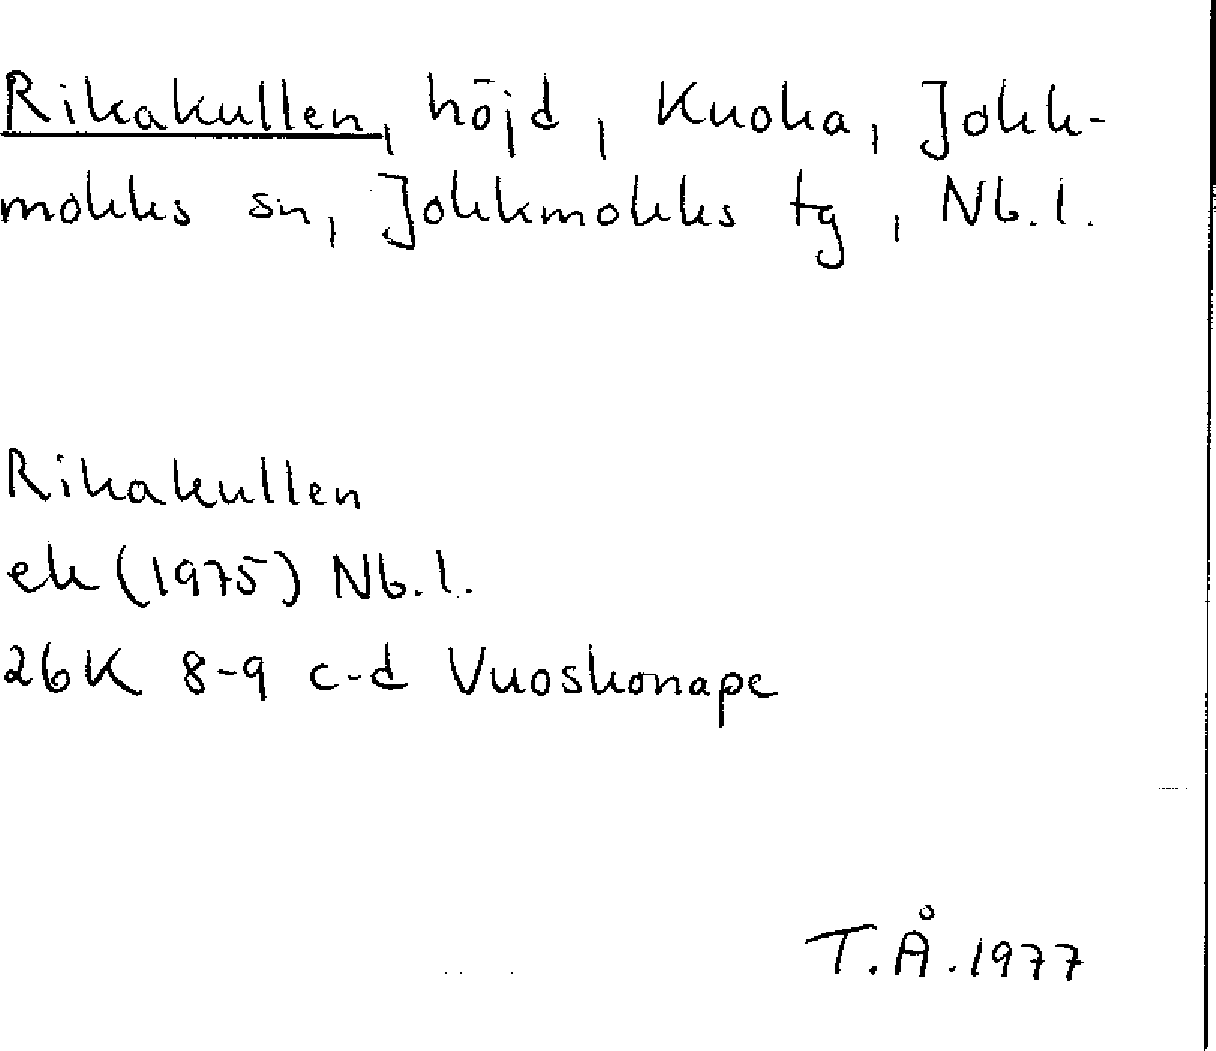 Rikakullen, höjd, Kuoka, Jokk-
mokks sn, Jokkmokks tg, Nb.l.
Rikakullen
ek (1975) Nb.l.
26K 8-9 c-d Vuoskonape
T.Å.1977